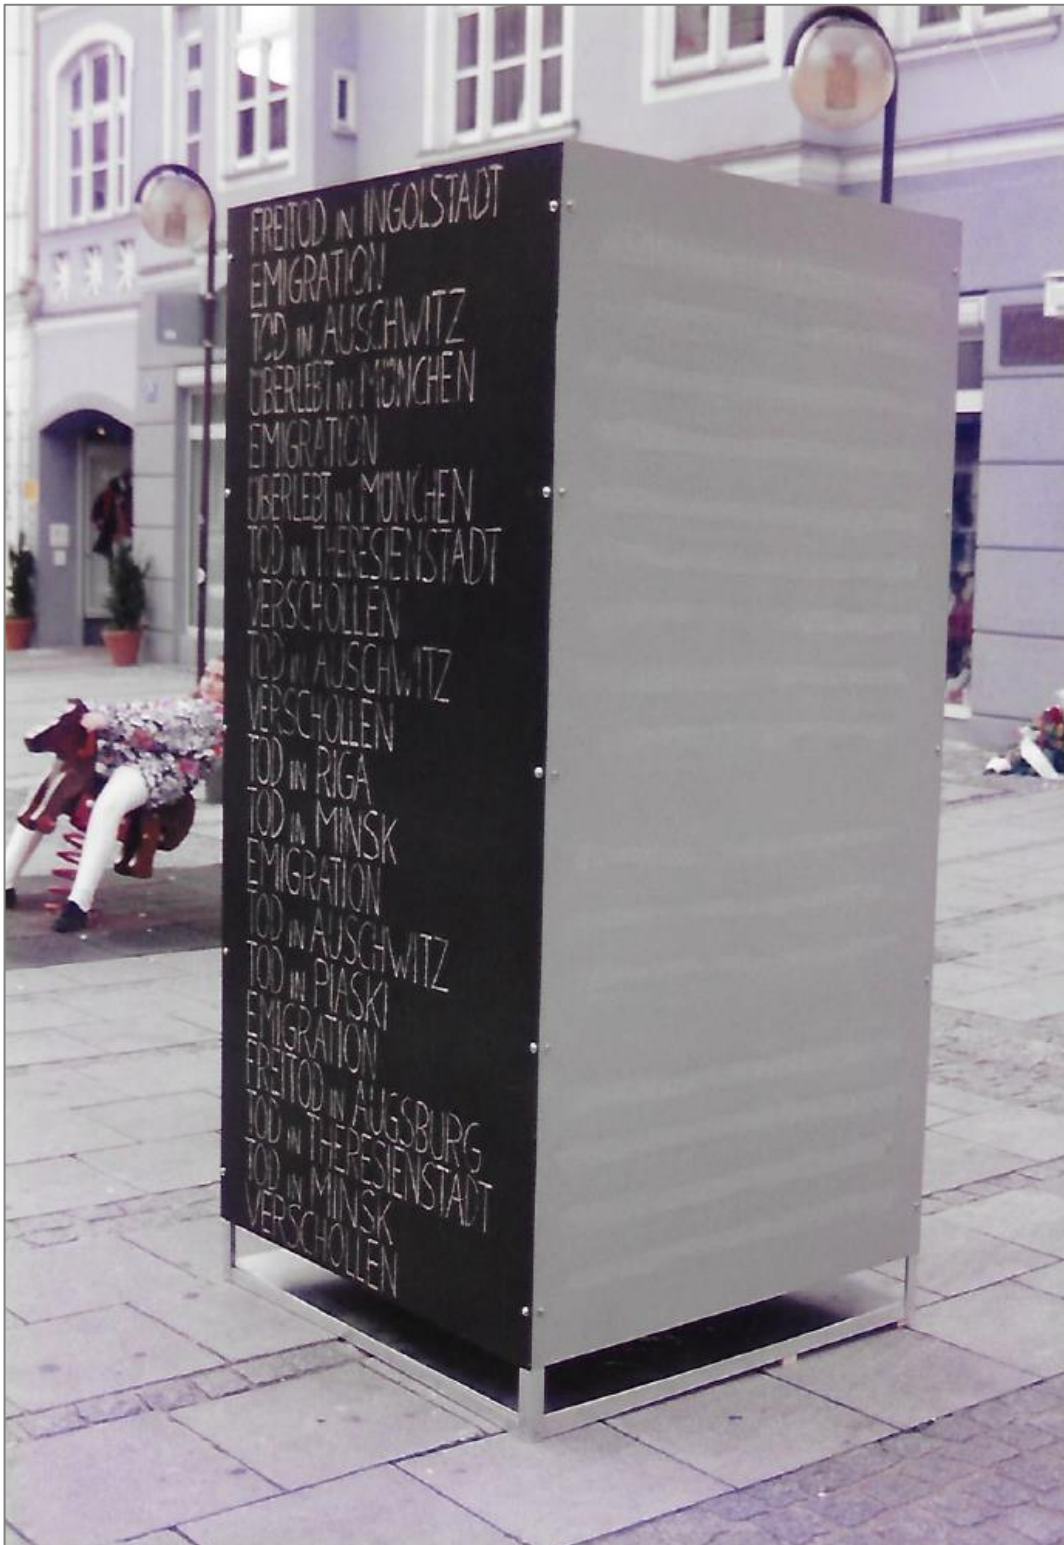 FREITOD IN INGOLSTADT
EMIGRATION
TOD IN AUSCHWITZ
ÜBERLEBT IN MÜNCHEN
EMIGRATION
ÜBERLEBT IN MÜNCHEN
TOD IN THERESIENSTADT
VERSCHOLLEN
TOD IN AUSCHWITZ
VERSCHOLLEN
TOD IN RIGA
TOD IN MINSK
EMIGRATION
TOD IN AUSCHWITZ
TOD IN PIASKI
EMIGRATION
FREITOD IN AUGSBURG
TOD IN THERESIENSTADT
TOD IN MINSK
VERSCHOLLEN